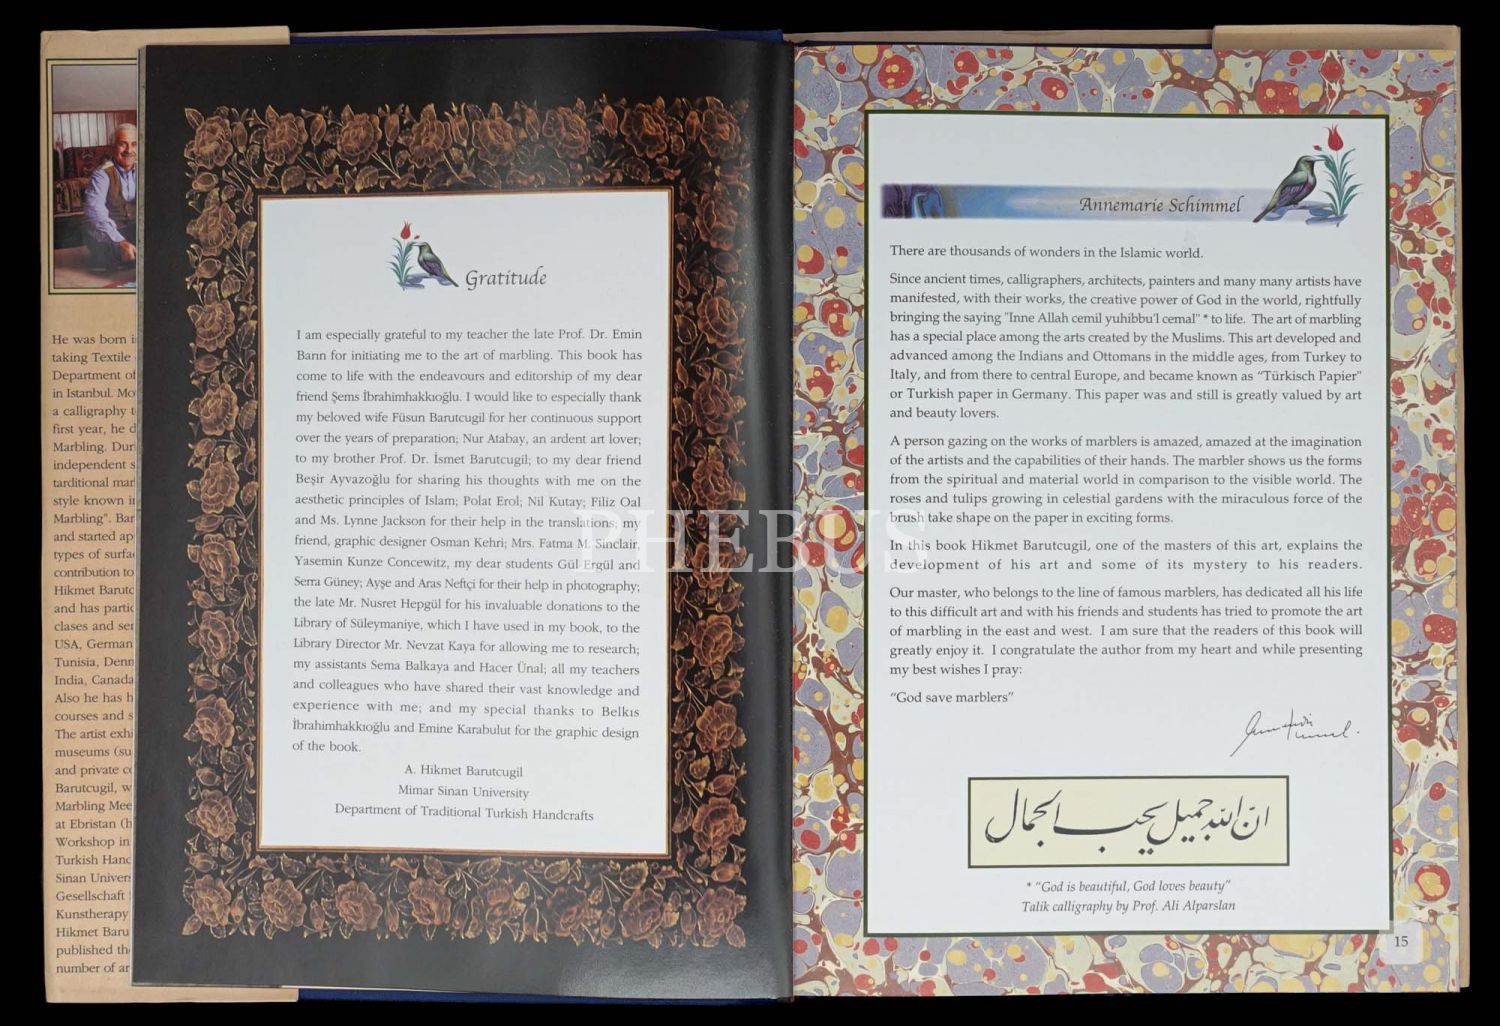 He was born i
taking Textile
Department of
in Istanbul. Mo
a calligraphy t
first year, he d
Marbling. Dur
independent s
tarditional mar
style known i
Marbling". Bar
and started ap
types of surfa
contribution to
Hikmet Barutc
and has partic
clases and ser
USA, German
Tunisia, Denn
India, Canada
Also he has h
courses and s
The artist exhi
museums (su
and private co
Barutcugil, w
Marbling Mee
at Ebristan (h
Workshop in
Turkish Hand
Sinan Univers
Gesellschaft
Kunstherapy
Hikmet Baru
published th
number of ar
Gratitude
I am especially grateful to my teacher the late Prof. Dr. Emin
Barın for initiating me to the art of marbling. This book has
come to life with the endeavours and editorship of my dear
friend Şems İbrahimhakkıoğlu. I would like to especially thank
my beloved wife Füsun Barutcugil for her continuous support
over the years of preparation; Nur Atabay, an ardent art lover;
to my brother Prof. Dr. İsmet Barutcugil; to my dear friend
Beşir Ayvazoğlu for sharing his thoughts with me on the
aesthetic principles of Islam; Polat Erol; Nil Kutay; Filiz Oal
and Ms. Lynne Jackson for their help in the translations; my
friend, graphic designer Osman Kehri; Mrs. Fatma M. Sinclair,
Yasemin Kunze Concewitz, my dear students Gül Ergül and
Serra Güney; Ayşe and Aras Neftçi for their help in photography;
the late Mr. Nusret Hepgül for his invaluable donations to the
Library of Süleymaniye, which I have used in my book, to the
Library Director Mr. Nevzat Kaya for allowing me to research;
my assistants Sema Balkaya and Hacer Ünal; all my teachers
and colleagues who have shared their vast knowledge and
experience with me; and my special thanks to Belkıs
İbrahimhakkıoğlu and Emine Karabulut for the graphic design
of the book.
A. Hikmet Barutcugil
Mimar Sinan University
Department of Traditional Turkish Handcrafts
PHEBUS
Annemarie Schimmel
There are thousands of wonders in the Islamic world.
Since ancient times, calligraphers, architects, painters and many many artists have
manifested, with their works, the creative power of God in the world, rightfully
bringing the saying "Inne Allah cemil yuhibbu'l cemal" * to life. The art of marbling
has a special place among the arts created by the Muslims. This art developed and
advanced among the Indians and Ottomans in the middle ages, from Turkey to
Italy, and from there to central Europe, and became known as “Türkisch Papier”
or Turkish paper in Germany. This paper was and still is greatly valued by art
and beauty lovers.
A person gazing on the works of marblers is amazed, amazed at the imagination
of the artists and the capabilities of their hands. The marbler shows us the forms
from the spiritual and material world in comparison to the visible world. The
roses and tulips growing in celestial gardens with the miraculous force of the
brush take shape on the paper in exciting forms.
In this book Hikmet Barutcugil, one of the masters of this art, explains the
development of his art and some of its mystery to his readers.
Our master, who belongs to the line of famous marblers, has dedicated all his life
to this difficult art and with his friends and students has tried to promote the art
of marbling in the east and west. I am sure that the readers of this book will
greatly enjoy it. I congratulate the author from my heart and while presenting
my best wishes I pray:
“God save marblers”
انّ الله جميل يحب الجمال
* “God is beautiful, God loves beauty”
Talik calligraphy by Prof. Ali Alparslan
15